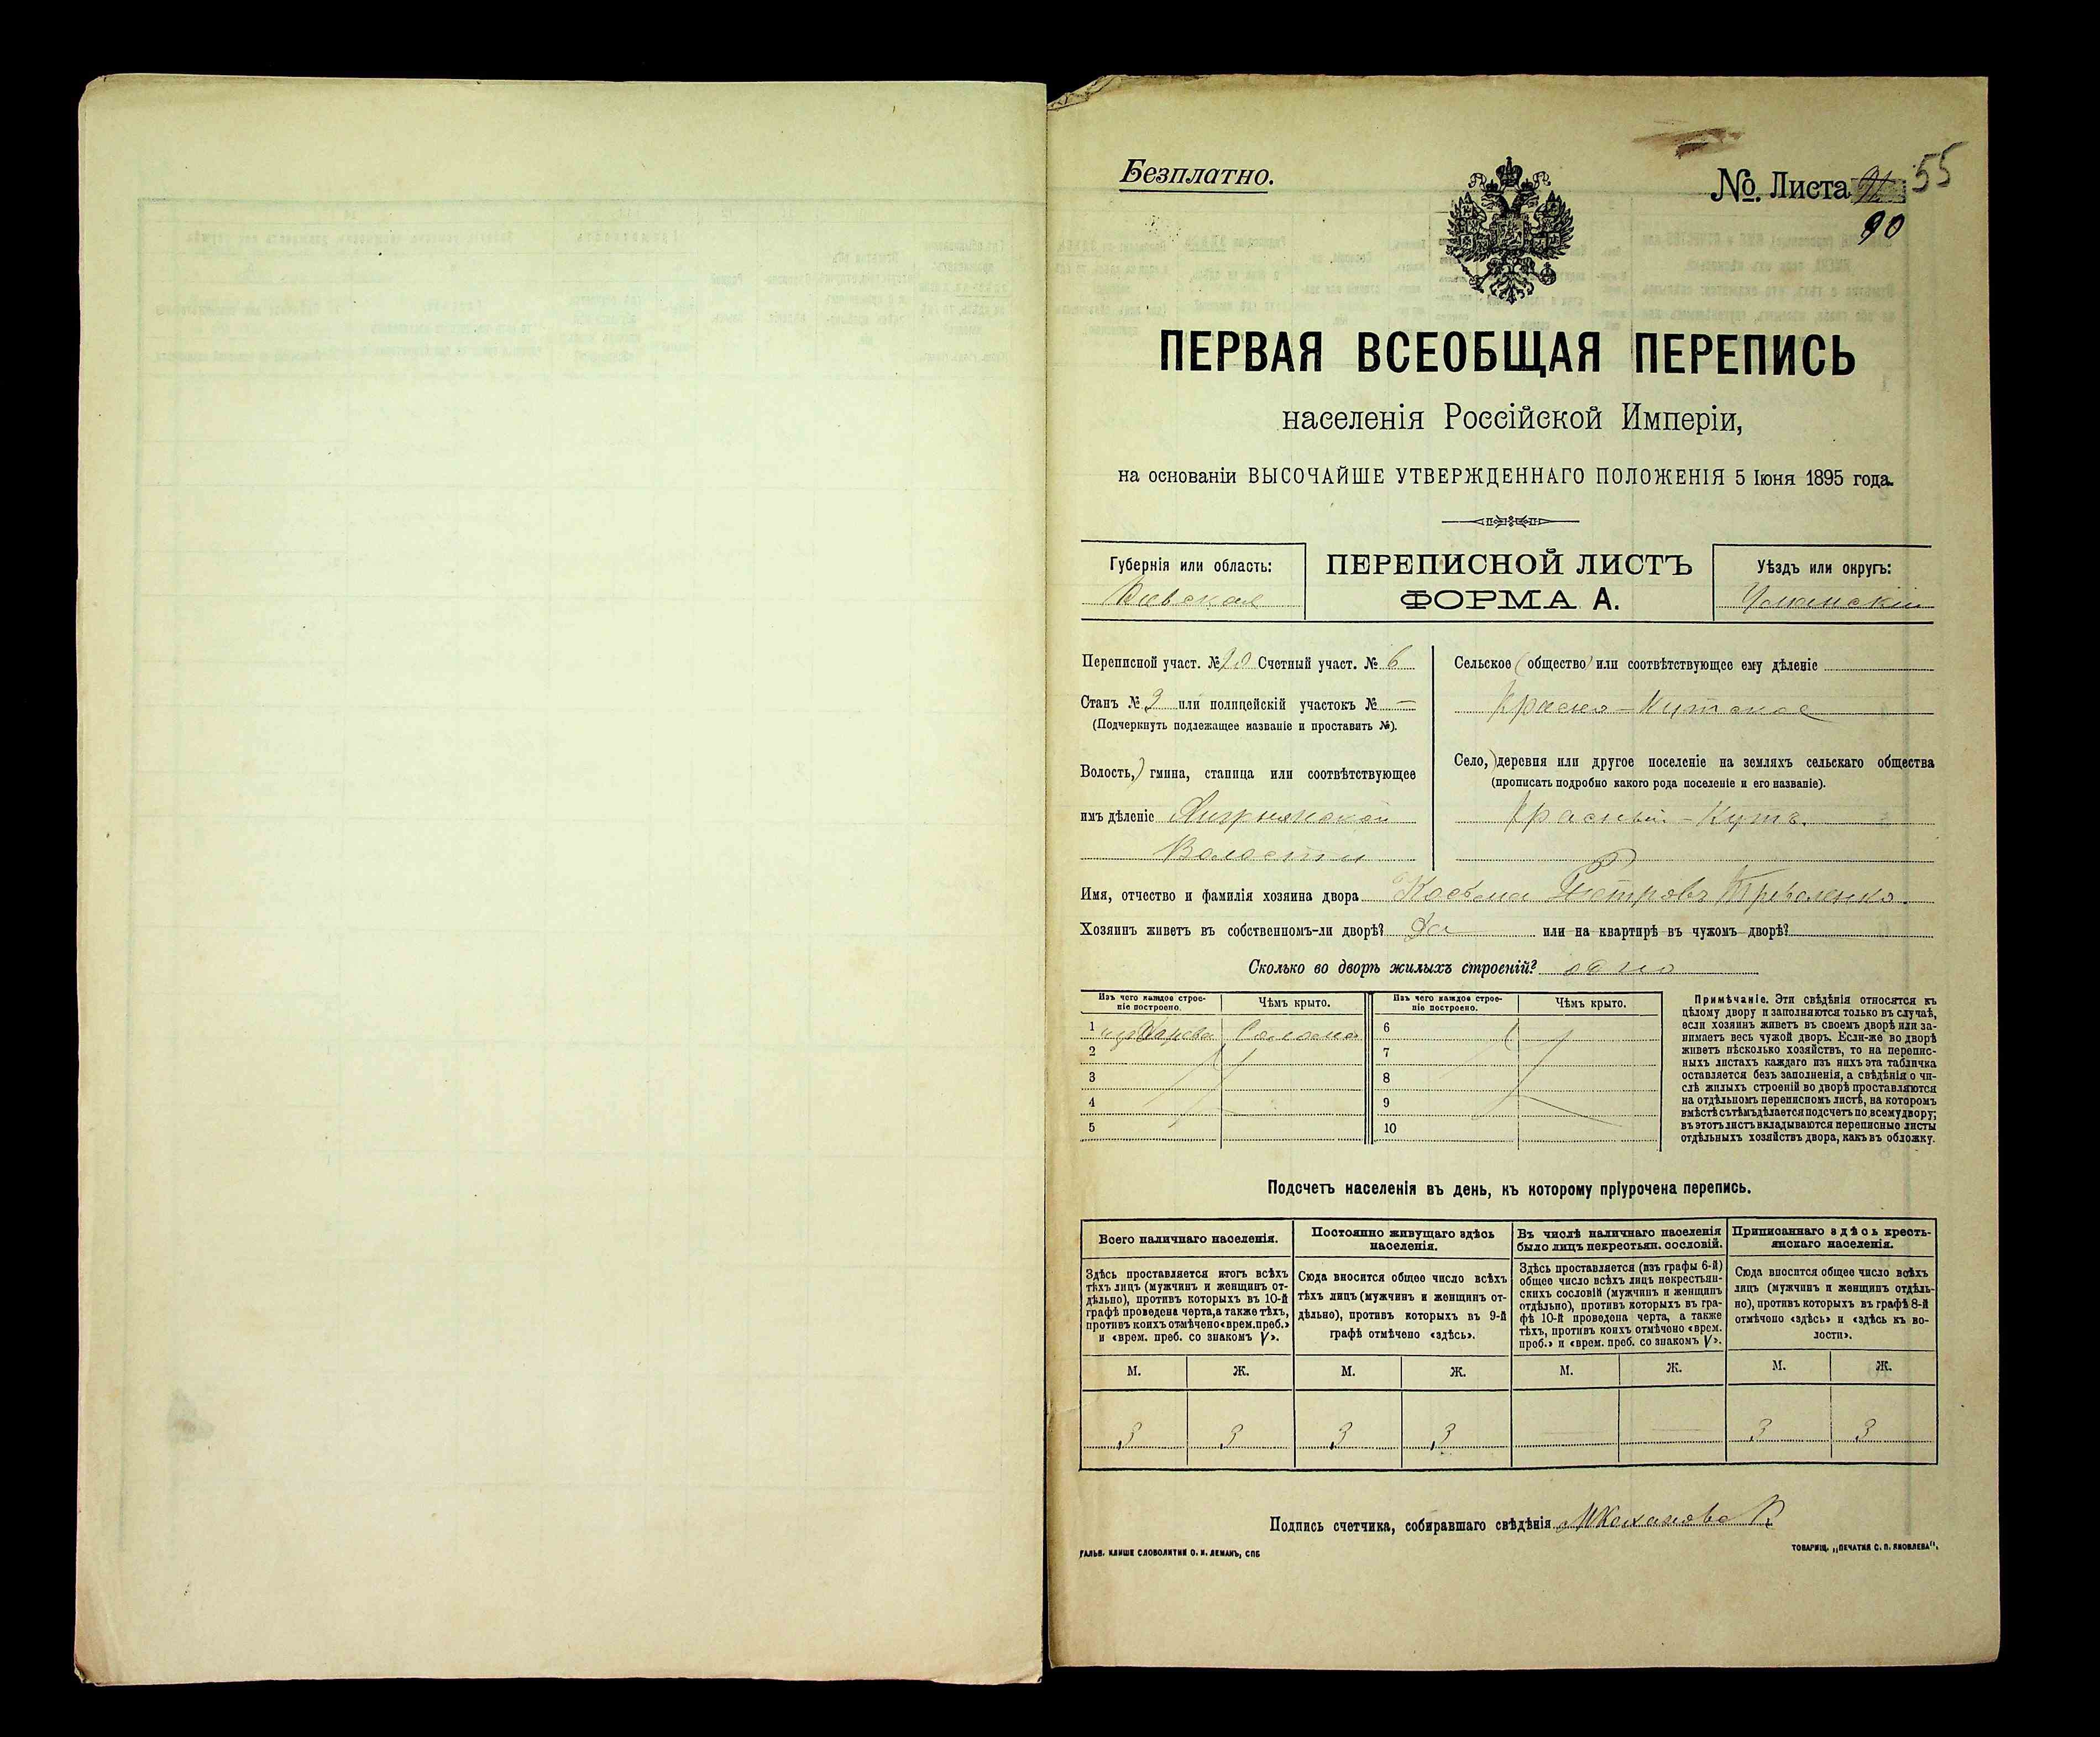 Безплатно.
№. Листа 55
90
ПЕРВАЯ ВСЕОБЩАЯ ПЕРЕПИСЬ
населенія Россійской Имперіи,
на основаніи ВЫСОЧАЙШЕ УТВЕРЖДЕННАГО ПОЛОЖЕНІЯ 5 Іюня 1895 года.
Губернія или область:
Киевская
ПЕРЕПИСНОЙ ЛИСТЪ
ФОРМА А.
Уѣздъ или округъ:
Уманскій
Переписной участ. № 10 Счетный участ. № 6
Станъ № 3 или полицейскій участокъ № —
(Подчеркнуть подлежащее названіе и проставить №).
Волость, гмина, станица или соотвѣтствующее
имъ дѣленіе
Волости
Сельское общество или соотвѣтствующее ему дѣленіе
Красно-Кутское
Село, деревня или другое поселеніе на земляхъ сельскаго общества
(прописать подробно какого рода поселеніе и его названіе).
Красный-Кутъ.
Имя, отчество и фамилія хозяина двора Косьма Петровъ
Хозяинъ живетъ въ собственномъ-ли дворѣ? Да или на квартирѣ въ чужомъ дворѣ?
Сколько во дворѣ жилыхъ строеній? одно
Изъ чего каждое строе-
ніе построено.
Чѣмъ крыто.
Изъ чего каждое строе-
ніе построено.
Чѣмъ крыто.
1 изъ дерева Солома
2
3
4
5
6
7
8
9
10
Примѣчаніе. Эти свѣдѣнія относятся къ
цѣлому двору и заполняются только въ случаѣ,
если хозяинъ живетъ въ своемъ дворѣ или за-
нимаетъ весь чужой дворъ. Если-же во дворѣ
живетъ нѣсколько хозяйствъ, то на перепис-
ныхъ листахъ каждаго изъ нихъ эта табличка
оставляется безъ заполненія, а свѣдѣнія о чи-
слѣ жилыхъ строеній во дворѣ проставляются
на отдѣльномъ переписномъ листѣ, на которомъ
вмѣстѣ съ тѣмъ дѣлается подсчетъ по всему двору;
въ этотъ листъ вкладываются переписные листы
отдѣльныхъ хозяйствъ двора, какъ въ обложку.
Подсчетъ населенія въ день, къ которому пріурочена перепись.
Всего наличнаго населенія.
Здѣсь проставляется итогъ всѣхъ
тѣхъ лицъ (мужчинъ и женщинъ от-
дѣльно), противъ которыхъ въ 10-й
графѣ проведена черта, а также тѣхъ,
противъ коихъ отмѣчено «врем. преб.»
и «врем. преб. со знакомъ V».
Постоянно живущаго здѣсь
населенія.
Сюда вносится общее число всѣхъ
тѣхъ лицъ (мужчинъ и женщинъ от-
дѣльно), противъ которыхъ въ 9-й
графѣ отмѣчено «здѣсь».
Въ числѣ наличнаго населенія
было лицъ некрестьян. сословій.
Здѣсь проставляется (изъ графы 6-й)
общее число всѣхъ лицъ некрестьян-
скихъ сословій (мужчинъ и женщинъ
отдѣльно), противъ которыхъ въ гра-
фѣ 10-й проведена черта, а также
тѣхъ, противъ коихъ отмѣчено «врем.
преб.» и «врем. преб. со знакомъ V».
Приписаннаго здѣсь кресть-
янскаго населенія.
Сюда вносится общее число всѣхъ
лицъ (мужчинъ и женщинъ отдѣль-
но), противъ которыхъ въ графѣ 8-й
отмѣчено «здѣсь» и «здѣсь къ во-
лости».
М. Ж. М. Ж. М. Ж. М. Ж.
3 3 3 3 — — 3 3
Подпись счетчика, собиравшаго свѣдѣнія
ГАЛЬВ. КЛИШЕ СЛОВОЛИТНИ О. И. ЛЕМАНЪ, СПБ
ТОВАРИЩ. „ПЕЧАТНЯ С. П. ЯКОВЛЕВА".